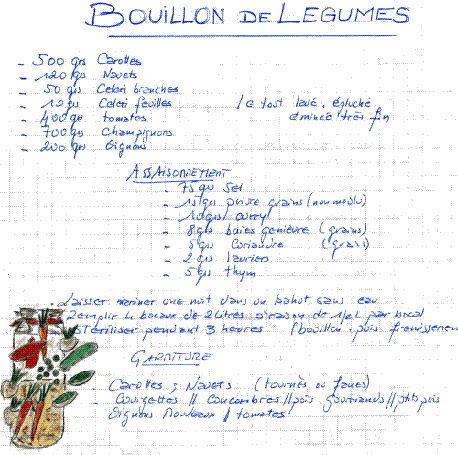 BOUILLON DE LEGUMES
- 500 grs Carottes
- 120 grs Navets
- 50 grs Celeri branches
- 10 grs Celeri feuilles
- 400 grs tomates
- 100 grs Champignons
- 200 grs Oignons
le tout lavé, épluché
émincé très fin
ASSAISONNEMENT
- 75 grs Sel
- grs poivre grains (non moulu)
- 10 grs curry
- 8 grs baies genièvre (grains)
- 5 grs Coriandre (grains)
- 2 grs lauriers
- 5 grs thym
. Laisser mariner une nuit dans un bahut sans eau
. Remplir 4 bocaux de 2 litres à raison de 1/2 L par bocal
. Stériliser pendant 3 heures (bouillon puis
GARNITURE
Carottes & Navets (tournés ou
Courgettes // Concombres // pois gourmands // ptits pois
Oignons Nouveaux // tomates